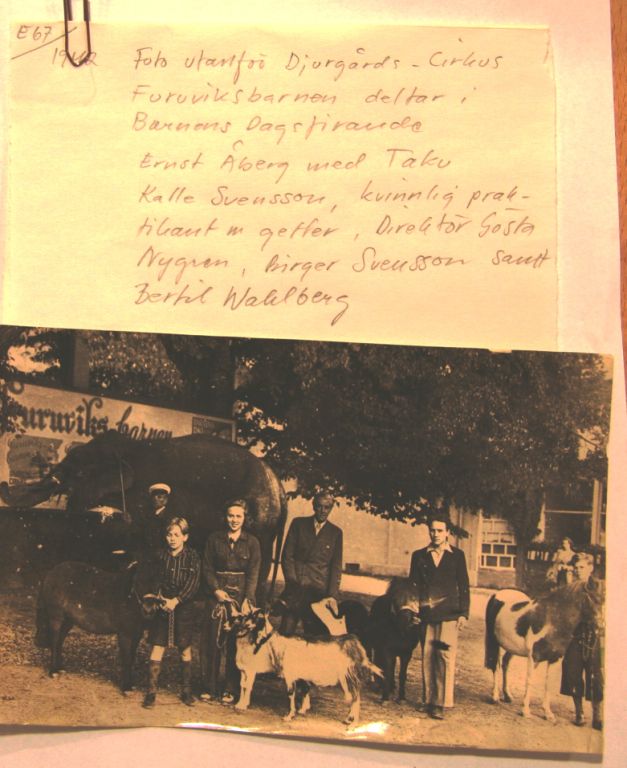 E67
1942 Foto utanför Djurgårds-Cirkus
Furuviksbarnen deltar i
Barnens Dagsfirande
Ernst Åberg med Taku
Kalle Svensson, kvinnlig prak-
tikant m getter, Direktör Gösta
Nygren, Birger Svensson samt
Bertil Wahlberg
Furuviks barnen